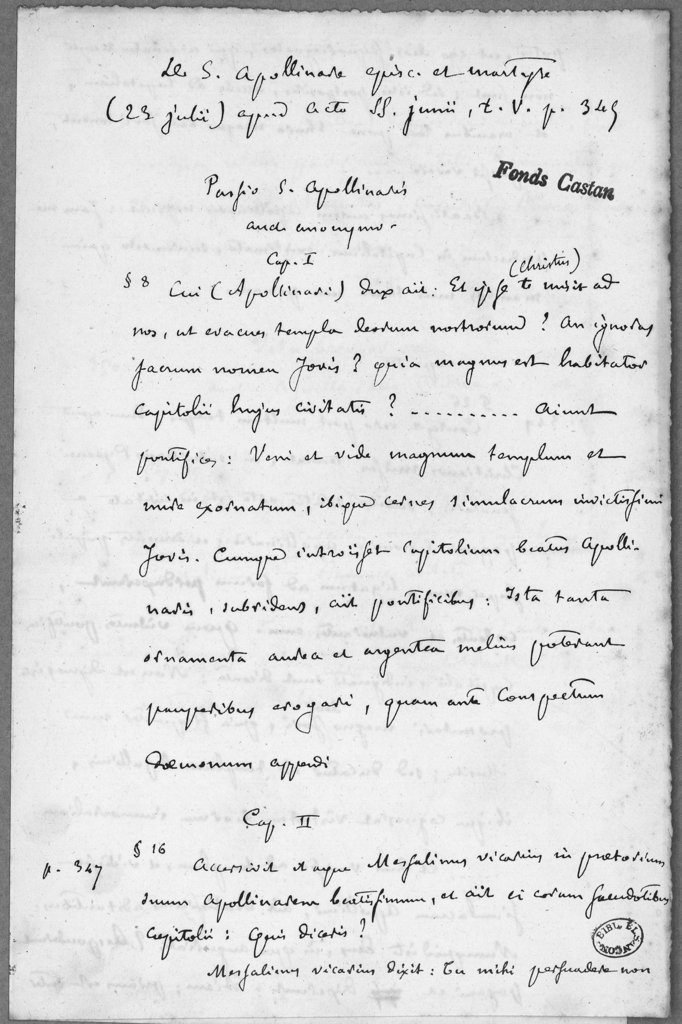 De S. Apollinare episc. et martyre
(23 julii) apud Acta SS. junii, t. V. p. 345
Fonds Castan
Passio S. Apollinaris
auct. anonymo.
Cap. I
(Christus)
§ 8 Cui (Apollinari) dux ait: Et ipse te misit ad
nos, ut evacues templa deorum nostrorum? An ignoras
sacrum nomen Jovis? quia magnus est habitator
capitolii hujus civitatis? .......... Aiunt
pontifices: Veni et vide magnum templum et
mire exornatum, ibique cernes simulacrum invictissimi
Jovis. Cumque introisset capitolium beatus Apolli-
naris, subridens, ait pontificibus: Ista tanta
ornamenta aurea et argentea melius poterant
pauperibus erogari, quam ante conspectum
dæmonum appendi
Cap. II
p. 347
§ 16 Accersivit itaque Messalinus vicarius in prætorium
suum Apollinarem beatissimum, et ait ei coram sacerdotibus
capitolii: Quis diceris?
Messalinus vicarius dixit: Tu mihi persuadere non